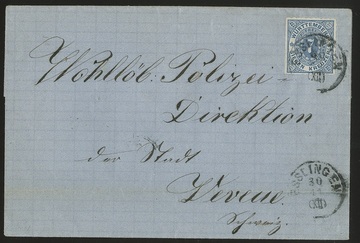 WÜRTTEMBERG
Wohllöb. Polizei-
Direktion
der Stadt
Veveuc.
Schweiz.
ESSLINGEN
30